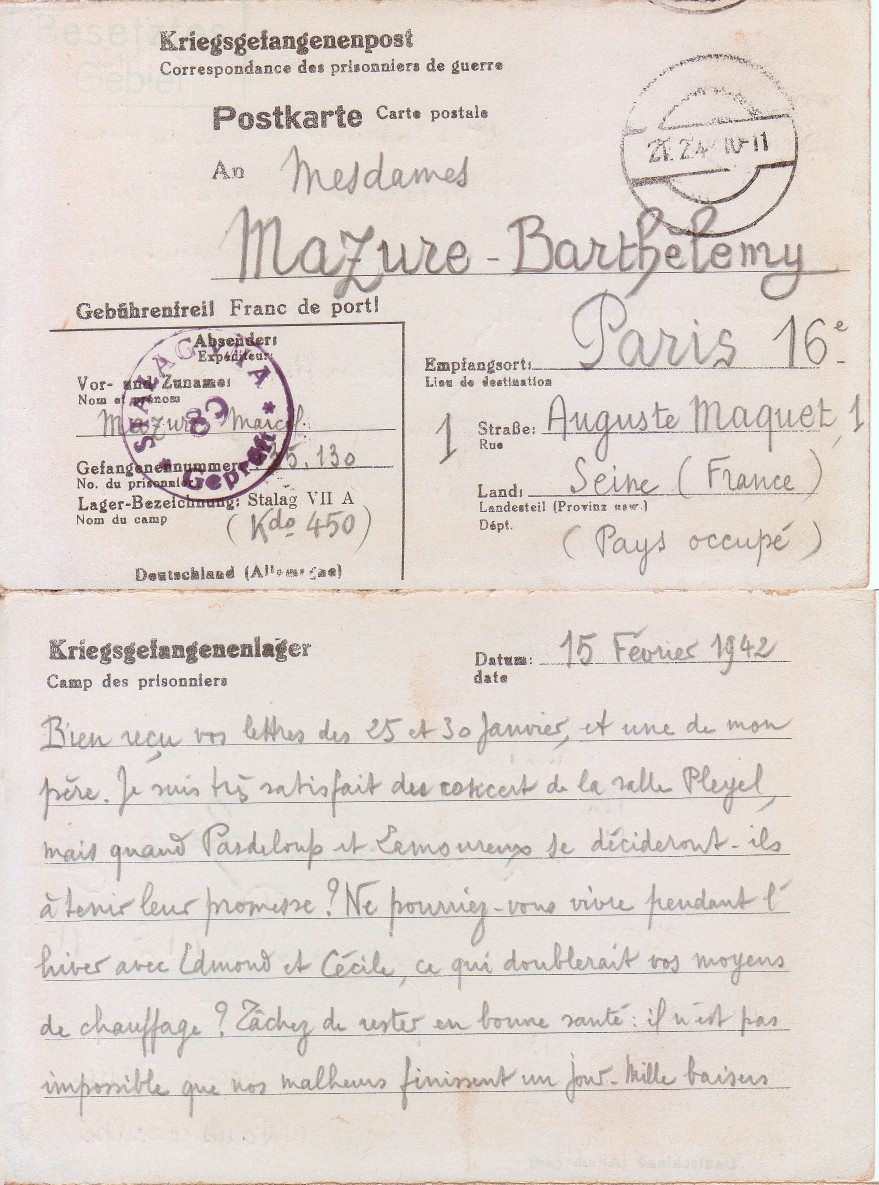 Besetztes
Gebiet
Kriegsgefangenenpost
Correspondance des prisonniers de guerre
Postkarte Carte postale
21.2.4 10-11
An Mesdames
Mazure - Barthélemy
Gebührenfrei! Franc de port!
Paris 16e
Absender:
Expéditeur:
Empfangsort:
Lieu de destination
Vor- und Zuname:
Nom et prénom
Mazure Marcel
STALAG VII A
89
Geprüft
1 Straße: Auguste Maquet, 1
Rue
Gefangenennummer: 35.130
No. du prisonnier
Land: Seine (France)
Landesteil (Provinz usw.)
Dépt.
Lager-Bezeichnung: Stalag VII A
Nom du camp
(Kdo 450)
(Pays occupé)
Deutschland (Allemagne)
Kriegsgefangenenlager
Camp des prisonniers
Datum: 15 Février 1942
date
Bien reçu vos lettres des 25 et 30 Janvier, et une de mon
père. Je suis très satisfait du concert de la salle Pleyel,
mais quand Pasdeloup et Lamoureux se décideront-ils
à tenir leur promesse? Ne pourriez-vous vivre pendant l'
hiver avec Edmond et Cécile, ce qui doublerait vos moyens
de chauffage? Tâchez de rester en bonne santé: il n'est pas
impossible que nos malheurs finissent un jour. Mille baisers